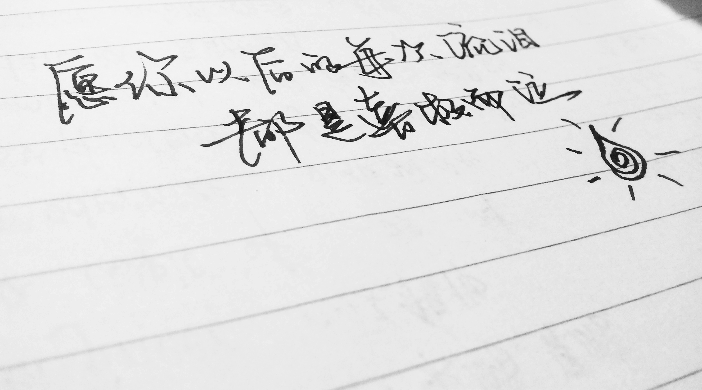 愿你以后的每次流泪
都是喜极而泣